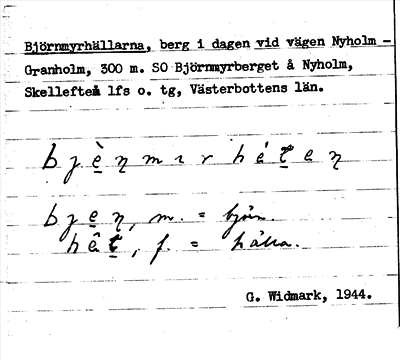 Björnmyrhällarna, berg i dagen vid vägen Nyholm -
Granholm, 300 m. SO Björnmyrberget å Nyholm,
Skellefteå lfs o. tg, Västerbottens län.
m. = björn.
f. = hälla.
G. Widmark, 1944.